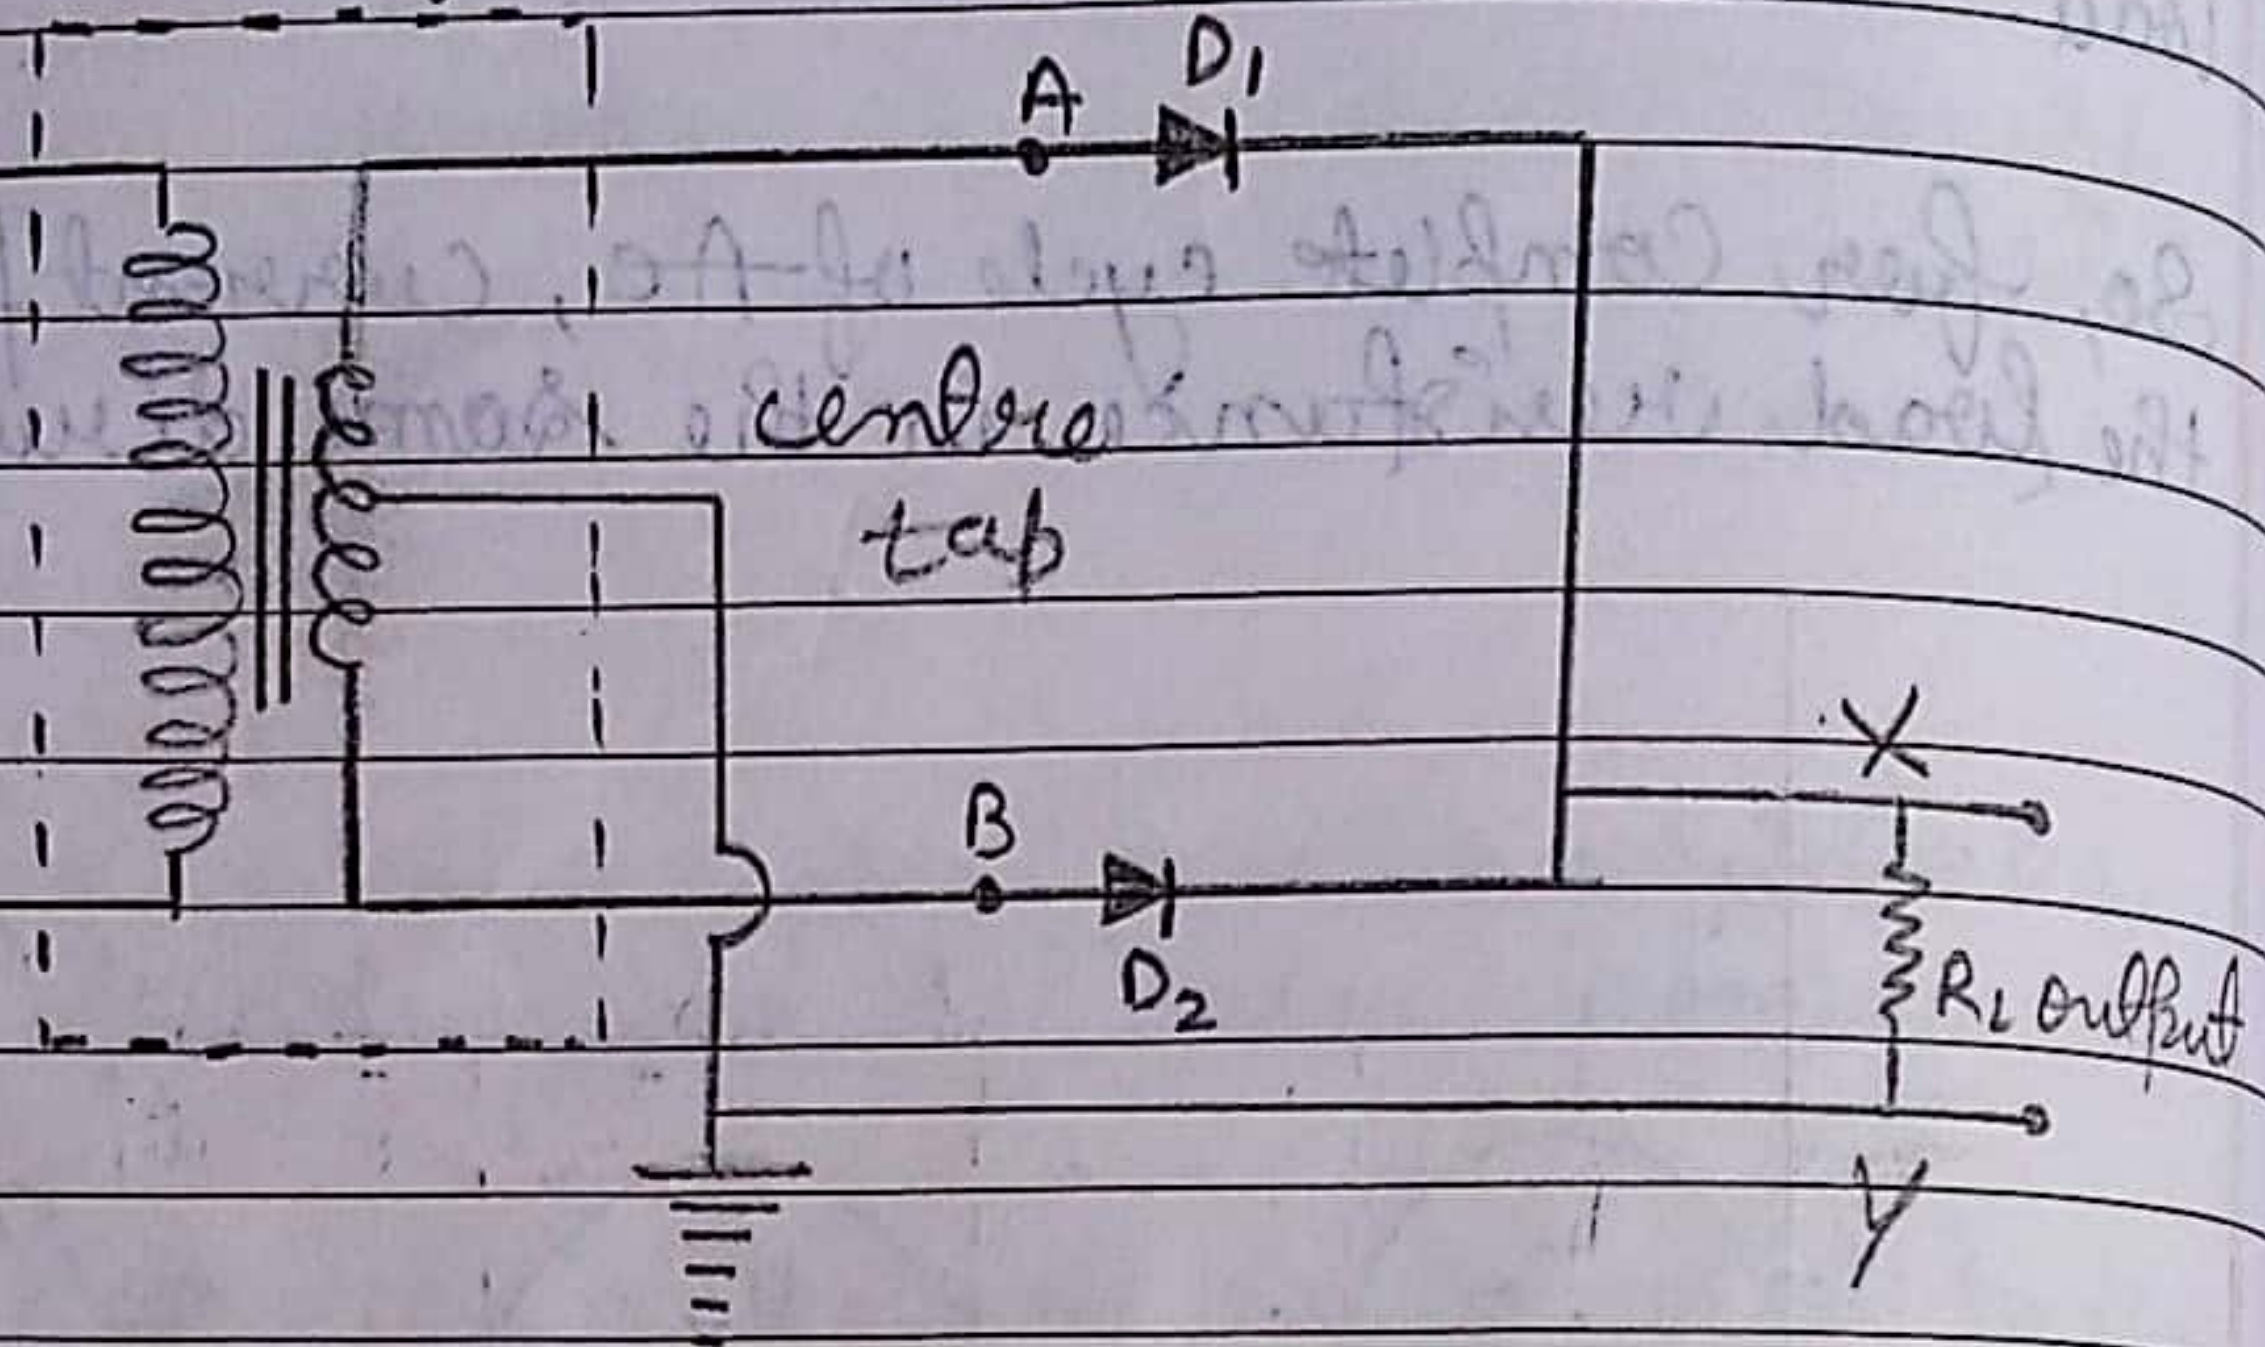 D1
A
centre
tap
X
B
D2
RL output
Y